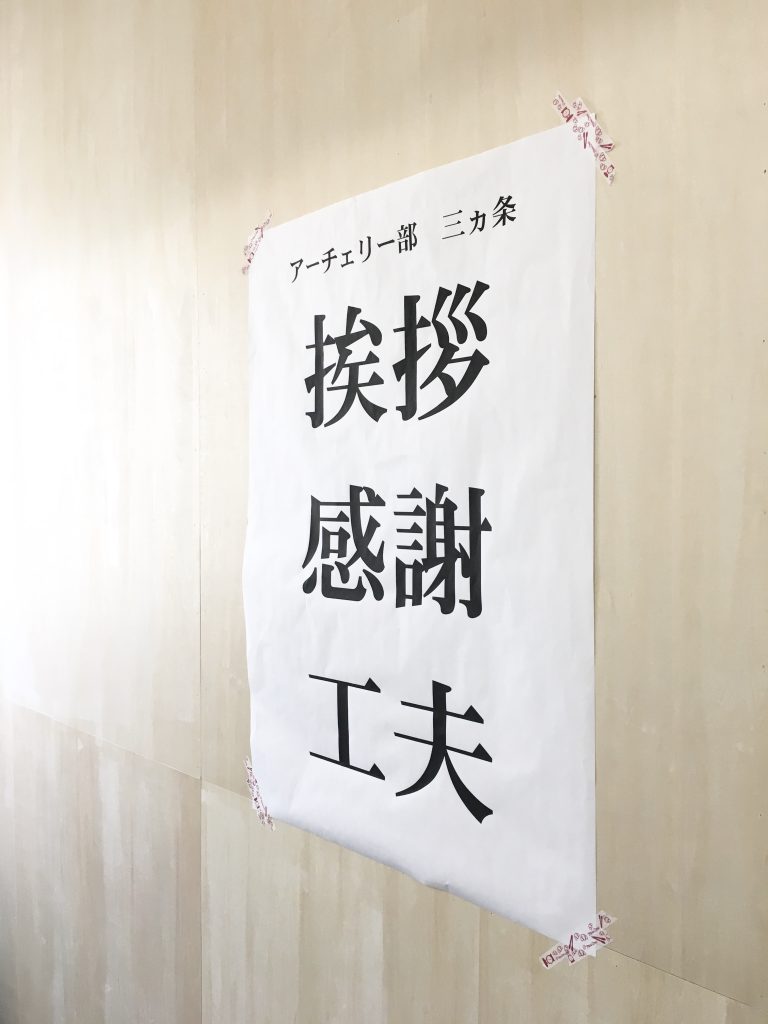 アーチェリー部　三ヵ条
挨拶
感謝
工夫